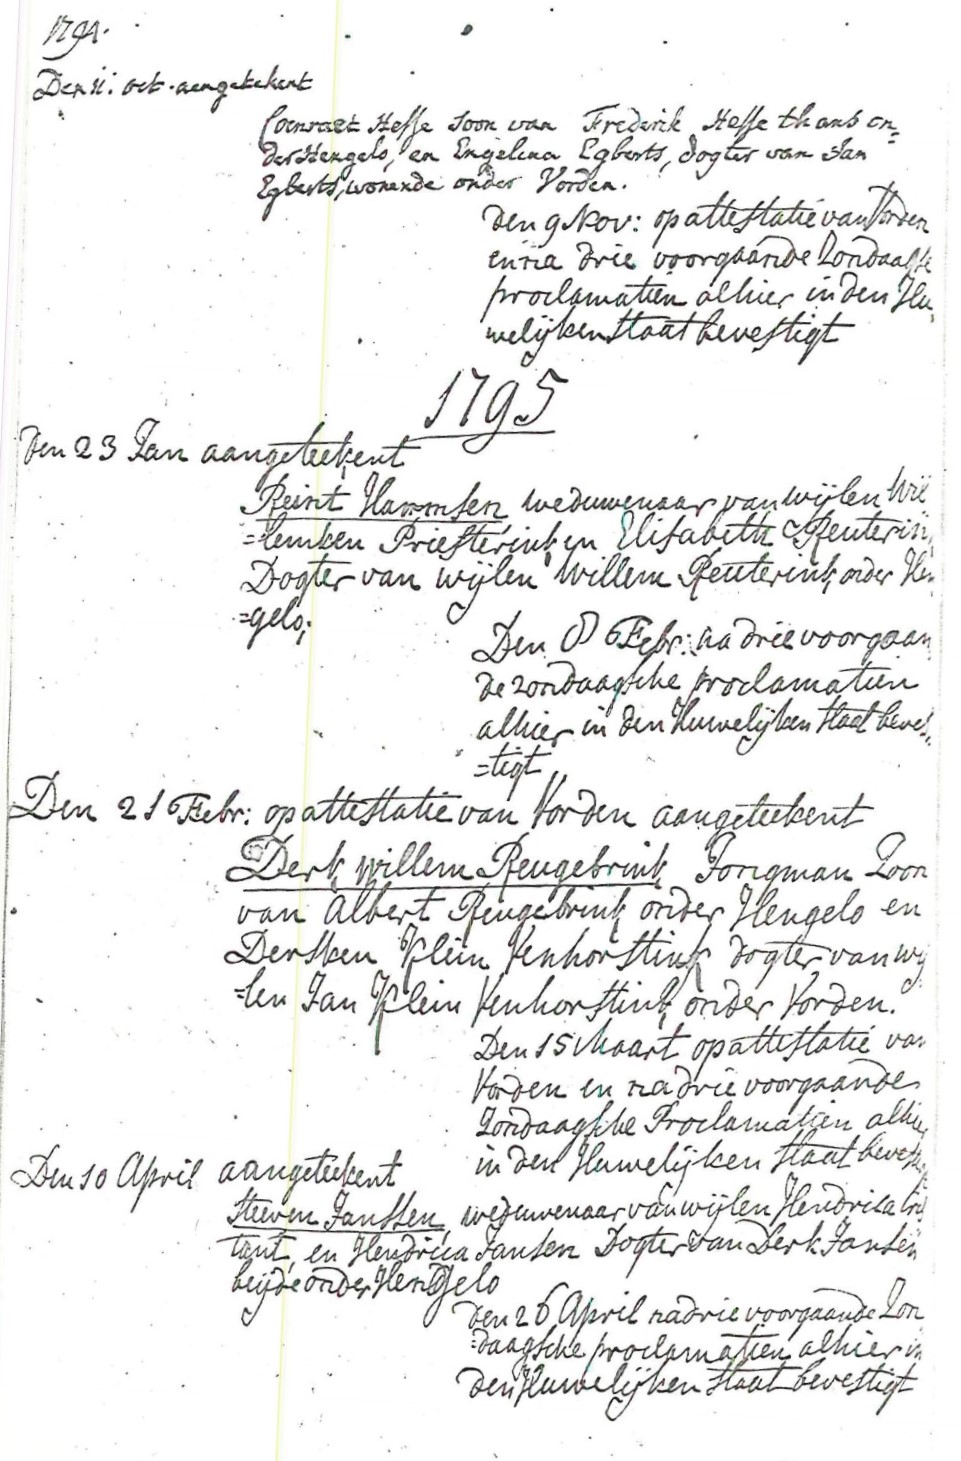 1794.
Den 11: oct. aengetekent
Coenraet Hesse Soon van Frederik Hesse thans on=
der Hengelo, en Engelina Egberts, dogter van Jan
Egberts, wonende onder Vorden.
den 9 Nov: op attestatie van Vorden
en na drie voorgaande Zondaagse
proclamatien alhier in den Hu=
welijken staat bevestigt
1795
Den 23 Jan aangeteekent
Reint Harmsen weduwenaar van wijlen Wil
=lemken Priesterink en Elisabeth Reuterink
Dogter van wijlen Willem Reuterink onder Hen
=gelo;
Den 8 Febr: na drie voorgaan
de zondaagsche proclamatien
alhier in den Huwelijken staat beves=
=tigt
Den 21 Febr: op attestatie van Vorden aangeteekent
Derk Willem Reugebrink Jongman Zoon
van Albert Reugebrink onder Hengelo en
Dersken Klein Venhorstink dogter van wij
=len Jan Klein Venhorstink onder Vorden.
Den 15 Maart op attestatie van
Vorden en na drie voorgaande
Zondaagsche Proclamatien alhier
in den Huwelijken staat bevest
Den 10 April aangeteekent
Steeven Janssen, weduwenaar van wijlen Hendrica
en Hendrica Jansen Dogter van Derk Jansen
beijde onder Hengelo
den 26 April na drie voorgaande Zon
=daagsche proclamatien alhier in
den Huwelijken staat bevestigt